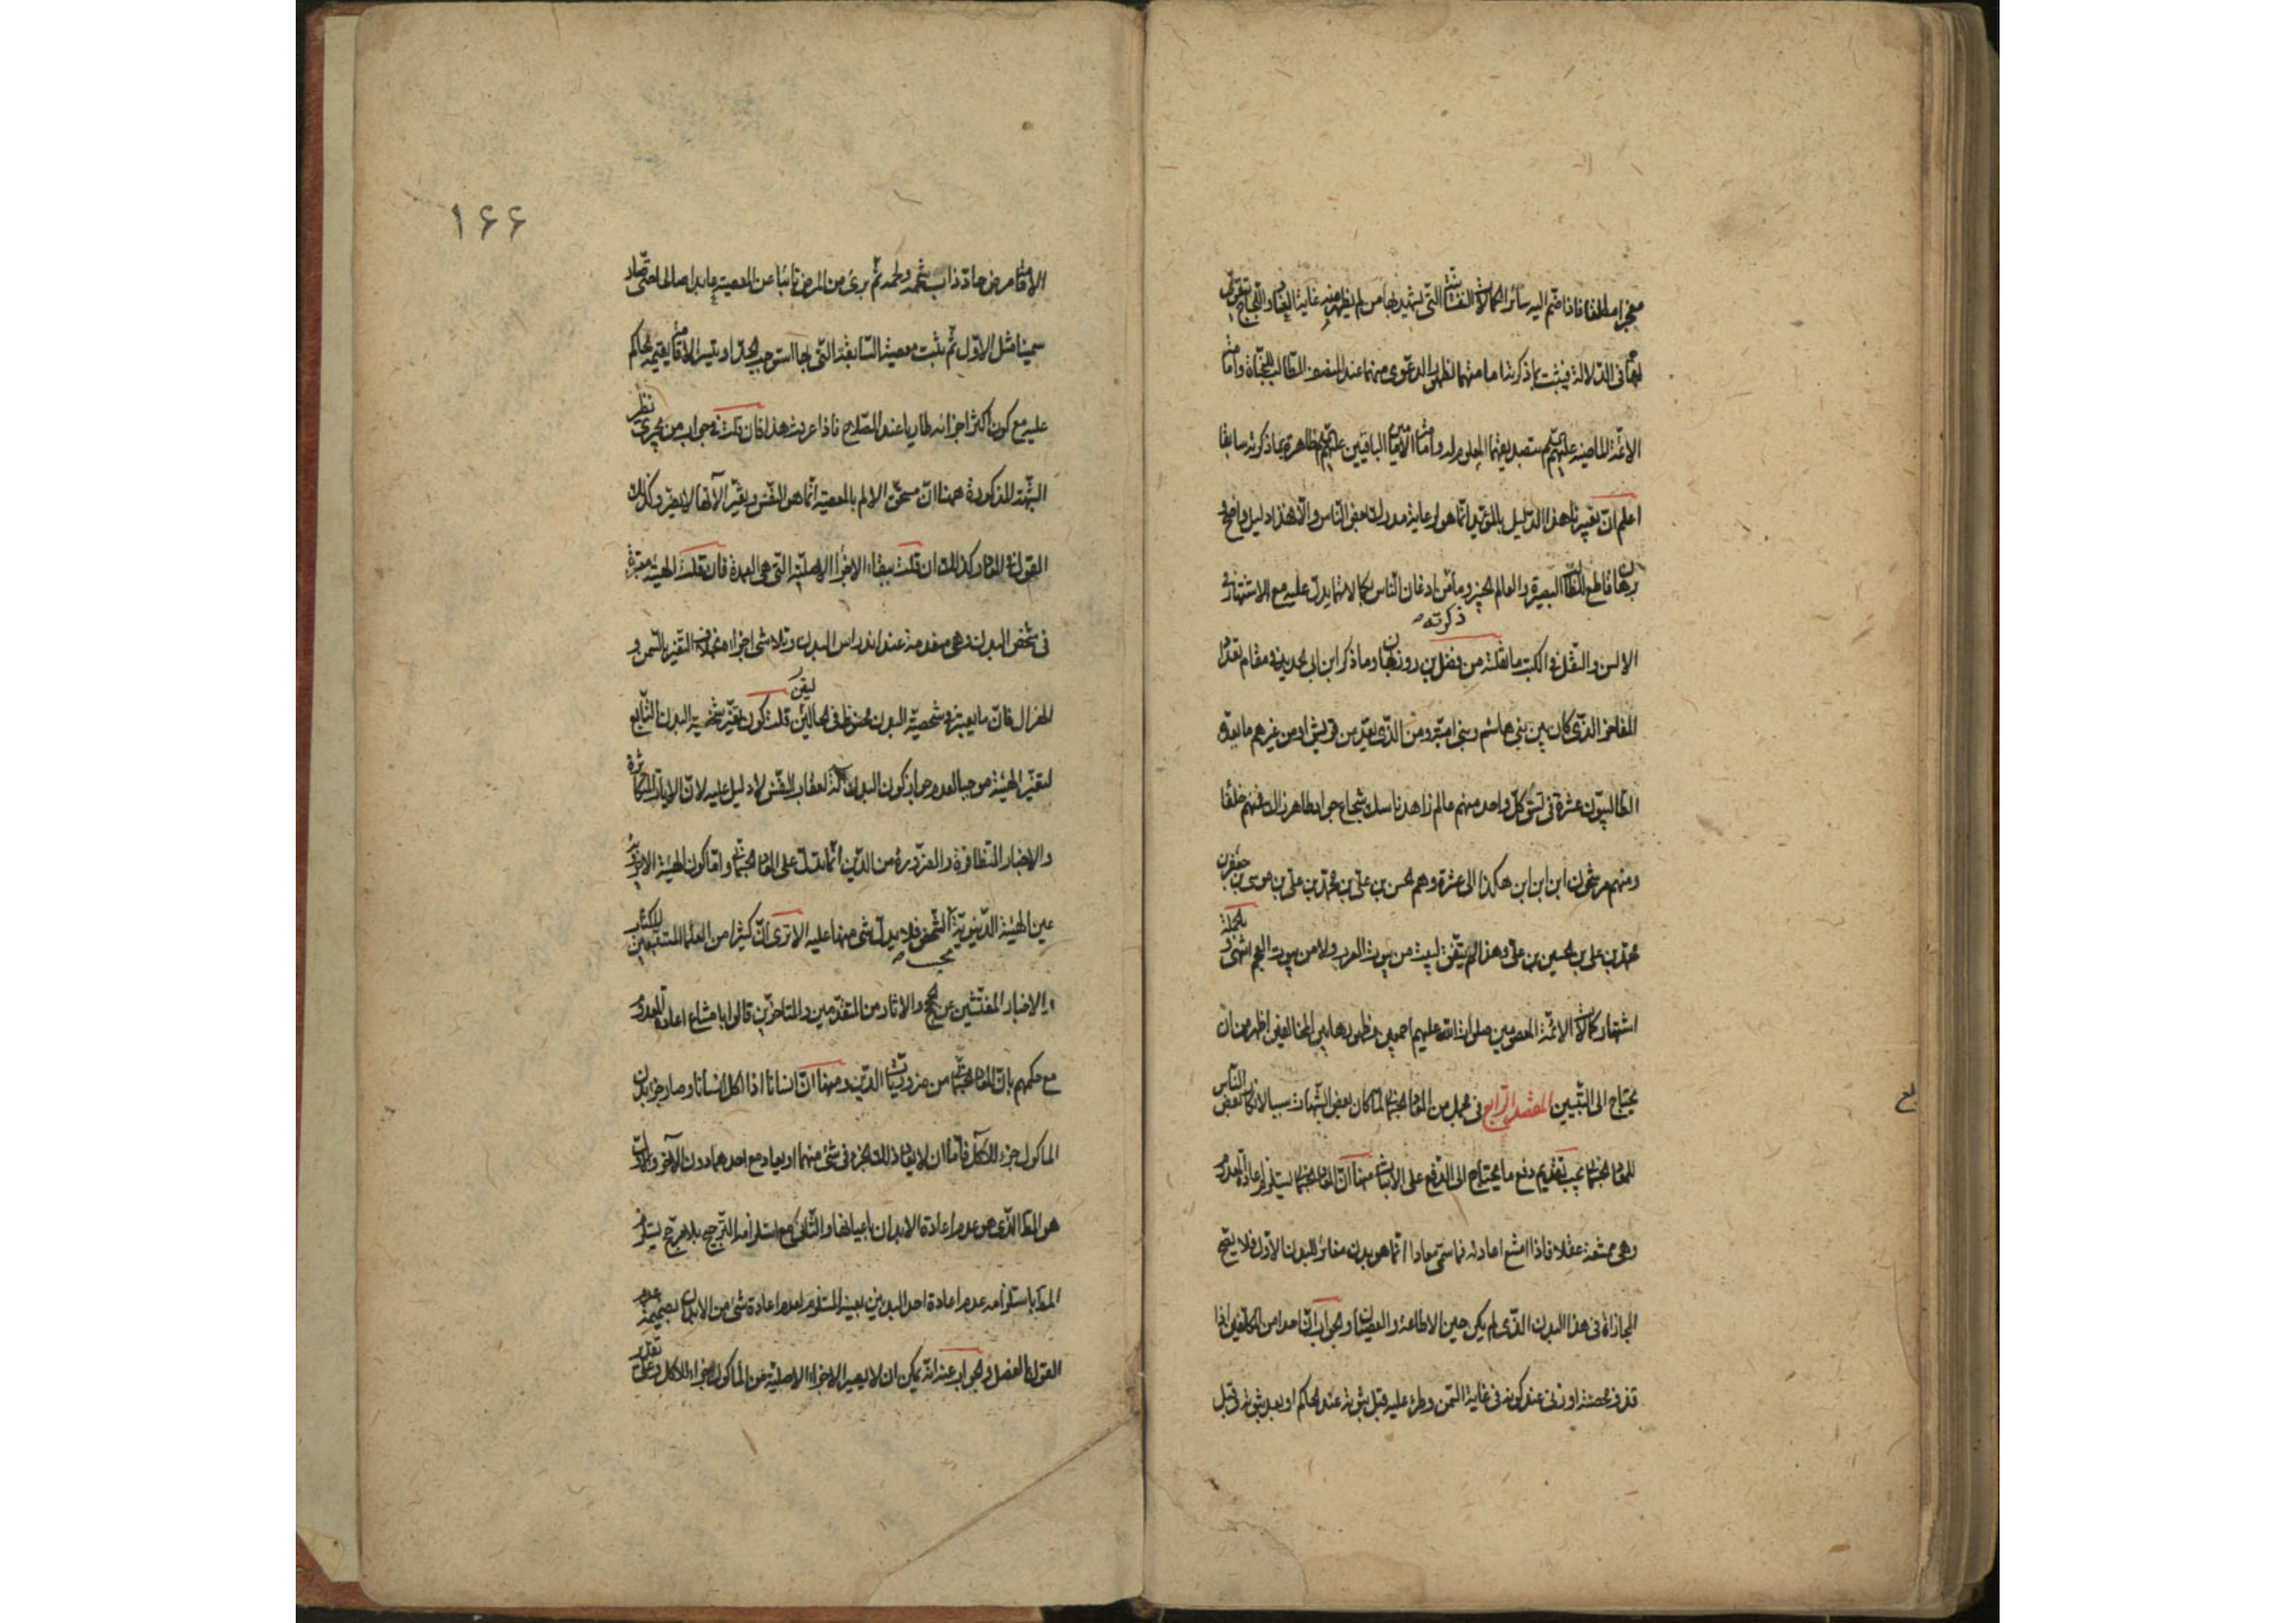 اليه سائر الكمالات النفسانية التى من لم يظهر منه غاية
فى الدلالة فيثبت بما ذكرته امامتهما لظهور الدعوى منهما عند المنصف الطالب للنجاة واما
الائمة الماضية عليهم واما الباقين عليهم ظاهرة بما ذكرته سابقا
اعلم ان هذا الدليل بالمؤيد انما هو لرعاية بعض الناس والا هذا دليل واضح و
قاطع البصيرة والعالم الخبير اذعان الناس بكمالاتهما يدل عليه مع الاشتهار فى
ذكرته
الالسن والنقل فى الكتب ما نقلته من فضل بن روزبهان وما ذكر ابن ابى الحديد فى مقام تعداد
المفاخر الذى كان بين بنى هاشم وبنى امية ومن الذى يعد من قريش او من غيرهم ما يعده
الطالبيون عشرة فى نسق كل واحد منهم عالم زاهد ناسك شجاع جواد طاهر زاك فمنهم خلفا
ومنهم مرشحون ابن ابن ابن هكذا الى عشرة وهم الحسن بن على بن محمد بن على بن موسى بن جعفر بن
محمد بن على بن الحسين بن على وهذا لم يتفق لبيت من بيوت العرب ولا من بيوت العجم انتهى و بالجملة
اشتهار كمالات الائمة المعصومين صلوات الله عليهم اجمعين وظهورها بين المخالفين اظهر من ان
يحتاج الى التبيين المقصد الرابع فى مجمل من المعاد الجسمانى لما كان بعض الشبهات سببا لانكار بعض الناس
للمعاد الجسمانى يجب تقديم دفع ما يحتاج الى الدفع على الاثبات منها ان المعاد الجسمانى يستلزم اعادة المعدوم
وهى ممتنعة عقلا فاذا امتنع اعادته فما سمى معادا انما هو بدن مغاير للبدن الاول فلا يصح
المجازاة فى هذا البدن الذى لم يكن حين الاطاعة والعصيان والجواب ان احدا من المكلفين اذا
قذف محصنة او زنى عند كونه فى غاية السمن وطرء عليه قبل ثبوته عند الحاكم او بعد ثبوته وقبل
بلغ
۱۶۶
مرض حاد ذاب شحمه ولحمه ثم برئ من المرض تائبا عن المعصية صالحا حتى صار
سمينا مثل الاول ثم يثبت معصيته السابقة التى بها استوجب الحد او الاقامة يقيمه الحاكم
عليه مع كون اكثر اجزائه طاريا عند الصلاح فاذا عرفت هذا فان قلت فى جواب من يجرى نظير
الشبهة المذكورة ههنا ان مستحق الالم بالمعصية انما هو النفس وتغير الآلة لا يضر وكذلك
القول فى المعاد وكذلك ان قلت ببقاء الاجزاء الاصلية التى هى العمدة فان قلت الهيئة معتبرة
فى شخص البدن وهى معدومة عند اندراس البدن وتلاشى اجزائه بخلاف التغير بالسمن و
الهزال فان ما يعتبر فى شخصية البدن محفوظ فى الحالين قلت كون تغير شخصية البدن التابع
لتغير الهيئة موجبا لعدم جواز كون البدن آلة لعقاب النفس لا دليل عليه لان الايات المتكاثرة
والاخبار المتظافرة والضرورة من الدين انما تدل على المعاد الجسمانى واما كون الهيئة الاخروية
عين الهيئة الدنيوية الشخص فلا يدل شئ منها عليه الا ترى ان كثيرا من العلما المتتبعين للكتاب
والاخبار المفتشين عن الحجج والاثار من المتقدمين والمتاخرين قالوا بامتناع اعادة المعدوم
مع حكمهم بان المعاد الجسمانى من ضروريات الدين ومنها ان انسانا اذا اكل انسانا وصار جزء بدن
الماكول جزء للآكل فاما ان لا يعاد ذلك الجزء فى شئ منهما او يعاد مع احدهما دون الآخر والاول
هو المط الذى هو عدم اعادة الابدان باعيانها والثانى مع استلزامه الترجيح بلا مرجح يستلزم
المط باستلزامه عدم اعادة احد البدنين بعينه المستلزم لعدم اعادة شئ من الابدان بضميمة عدم
القول بالفصل والجواب عنه انه يمكن ان لا يصير الاجزاء الاصلية من الماكول اجزاء للاكل وعلى تقدير